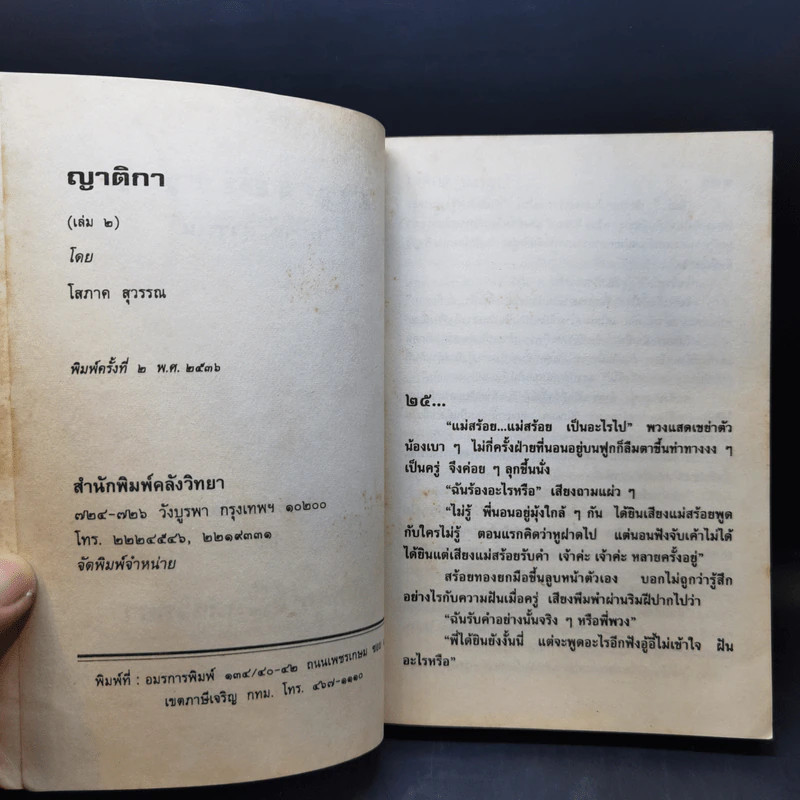 ญาติกา
(เล่ม ๒)
โดย
โสภาค สุวรรณ
พิมพ์ครั้งที่ ๒ พ.ศ. ๒๕๓๖
สำนักพิมพ์คลังวิทยา
๗๒๔-๗๒๖ วังบูรพา กรุงเทพฯ ๑๐๒๐๐
โทร. ๒๒๒๔๕๔๖, ๒๒๑๙๓๓๑
จัดพิมพ์จำหน่าย
พิมพ์ที่ : อมรการพิมพ์ ๑๓๔/๔๐-๔๒ ถนนเพชรเกษม ซอย
เขตภาษีเจริญ กทม. โทร. ๔๖๗-๑๑๑๐
๒๕...
“แม่สร้อย...แม่สร้อย เป็นอะไรไป” พวงแสดเขย่าตัว
น้องเบา ๆ ไม่กี่ครั้งฝ่ายที่นอนอยู่บนฟูกก็ลืมตาขึ้นทำท่างง ๆ
เป็นครู่ จึงค่อย ๆ ลุกขึ้นนั่ง
“ฉันร้องอะไรหรือ” เสียงถามแผ่ว ๆ
“ไม่รู้ พี่นอนอยู่มุ้งใกล้ ๆ กัน ได้ยินเสียงแม่สร้อยพูด
กับใครไม่รู้ ตอนแรกคิดว่าหูฝาดไป แต่นอนฟังจับเค้าไม่ได้
ได้ยินแต่เสียงแม่สร้อยรับคำ เจ้าค่ะ เจ้าค่ะ หลายครั้งอยู่”
สร้อยทองยกมือขึ้นลูบหน้าตัวเอง บอกไม่ถูกว่ารู้สึก
อย่างไรกับความฝันเมื่อครู่ เสียงพึมพำผ่านริมฝีปากไปว่า
“ฉันรับคำอย่างนั้นจริง ๆ หรือพี่พวง”
“พี่ได้ยินยังงั้นนี่ แต่จะพูดอะไรอีกฟังอู้อี้ไม่เข้าใจ ฝัน
อะไรหรือ”